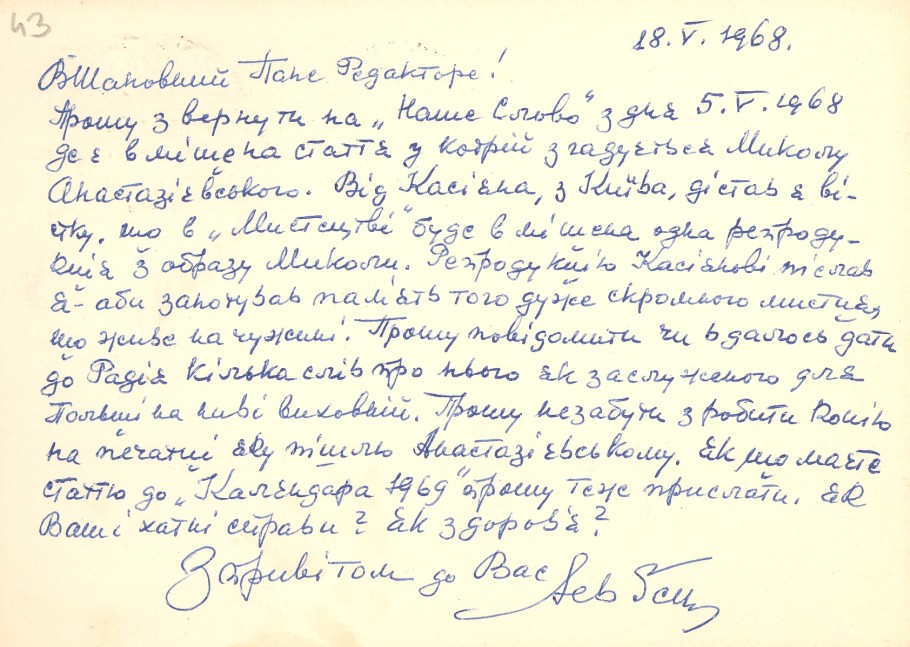 43
18.V.1968.
ВШановний Пане Редакторе!
Прошу звернути на „Наше Слово" з дня 5.V.1968
де є вміщена стаття у котрій згадується Миколу
Анастазієвського. Від Касіяна, з Київа, дістав я ві-
стку, що в „Мистецтві" буде вміщена одна репроду-
кція з образу Миколи. Репродукцію Касіянові післав
я - аби започував память того дуже скромного мистця,
що живе на чужині. Прошу повідомити чи вдалось дати
до Радія кілька слів про нього як заслуженого для
Польщі на ниві виховній. Прошу незабути зробити копію
на печатці яку пішлю Анастазієвському. Як що маєте
статтю до „Календара 1969" прошу теж прислати. Як
Ваші хатні справи? Як здоровя?
З привітом до Вас Лев Ґец